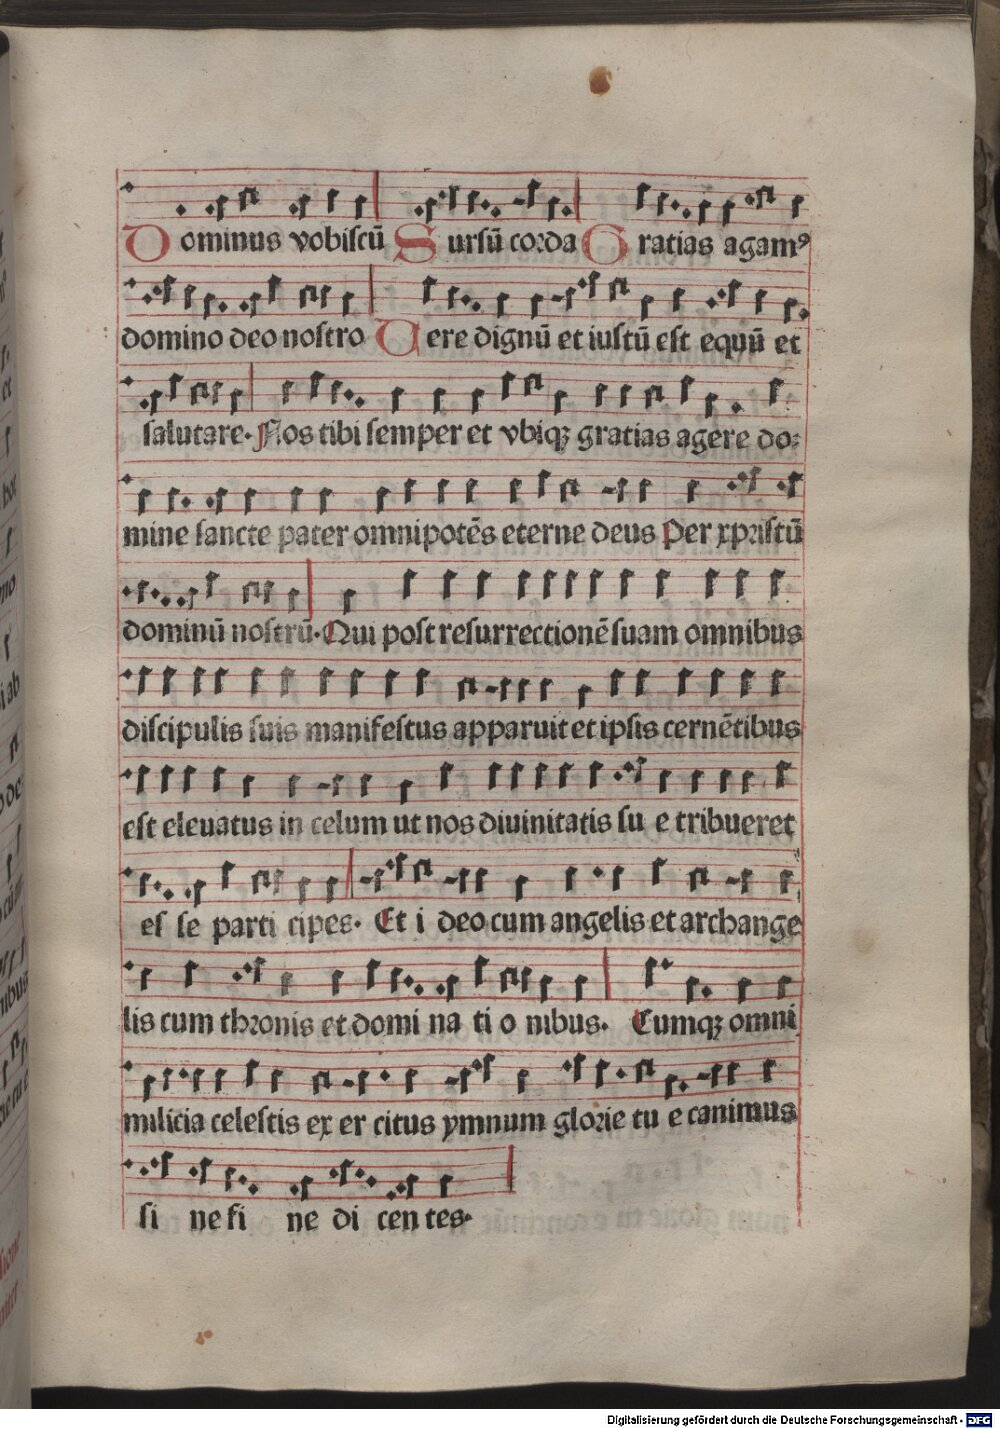 Dominus vobiscū Sursū corda Gratias agamꝰ
domino deo nostro Vere dignū et iustū est equū et
salutare. Nos tibi semper et vbiqꝫ gratias agere do⸗
mine sancte pater omnipotēs eterne deus Per xpristū
dominū nostrū. Qui post resurrectionē suam omnibus
discipulis suis manifestus apparuit et ipsis cernētibus
est eleuatus in celum ut nos diuinitatis su e tribueret
es se parti cipes. Et i deo cum angelis et archange
lis cum thronis et domi na ti o nibus. Cumqꝫ omni
milicia celestis ex er citus ymnum glorie tu e canimus
si ne fi ne di cen tes.
Digitalisierung gefördert durch die Deutsche Forschungsgemeinschaft - DFG